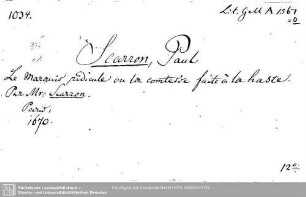 1034.
Lit. Gall. A. 1361
Scarron, Paul
Le Marquis ridicule ou la comtesse faite à la haste.
Par Mr. Scarron.
Paris,
1670.
12°.
Sächsische Landesbibliothek -
Staats- und Universitätsbibliothek Dresden